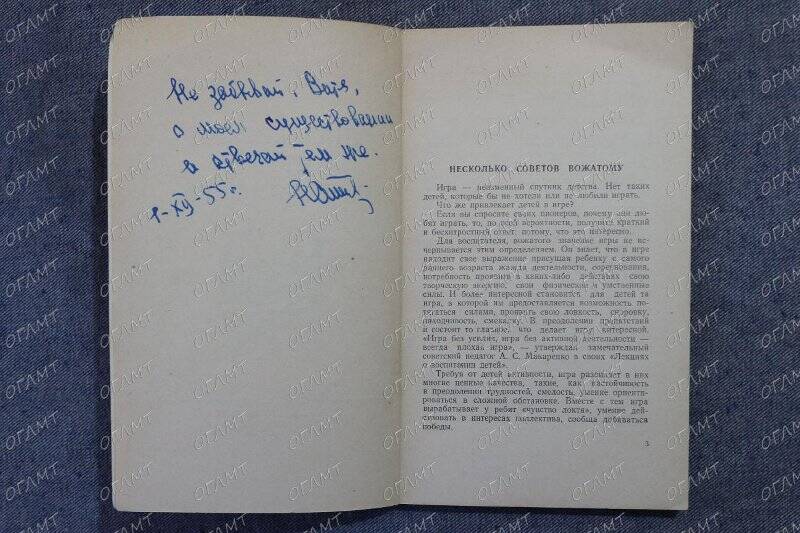 Не забывай, Вотя,
о моем существовании
и отвечай тем же.
1-XII-55г.
НЕСКОЛЬКО СОВЕТОВ ВОЖАТОМУ
Игра — неизменный спутник детства. Нет таких
детей, которые бы не хотели или не любили играть.
Что же привлекает детей в игре?
Если вы спросите своих пионеров, почему они лю-
бят играть, то, по всей вероятности, получите краткий
и бесхитростный ответ: потому, что это интересно.
Для воспитателя, вожатого значение игры не ис-
черпывается этим определением. Он знает, что в игре
находит свое выражение присущая ребенку с самого
раннего возраста жажда деятельности, соревнования,
потребность проявить в каких-либо действиях свою
творческую энергию, свои физические и умственные
силы. И более интересной становится для детей та
игра, в которой им предоставляется возможность по-
тягаться силами, проявить свою ловкость, сноровку,
находчивость, смекалку. В преодолении препятствий
и состоит то главное, что делает игру интересной.
«Игра без усилия, игра без активной деятельности —
всегда плохая игра», — утверждал замечательный
советский педагог А. С. Макаренко в своих «Лекциях
о воспитании детей».
Требуя от детей активности, игра развивает в них
многие ценные качества, такие, как настойчивость
в преодолении трудностей, смелость, умение ориенти-
роваться в сложной обстановке. Вместе с тем игра
вырабатывает у ребят «чувство локтя», умение дей-
ствовать в интересах коллектива, сообща добиваться
победы.
3
ОГАМТ